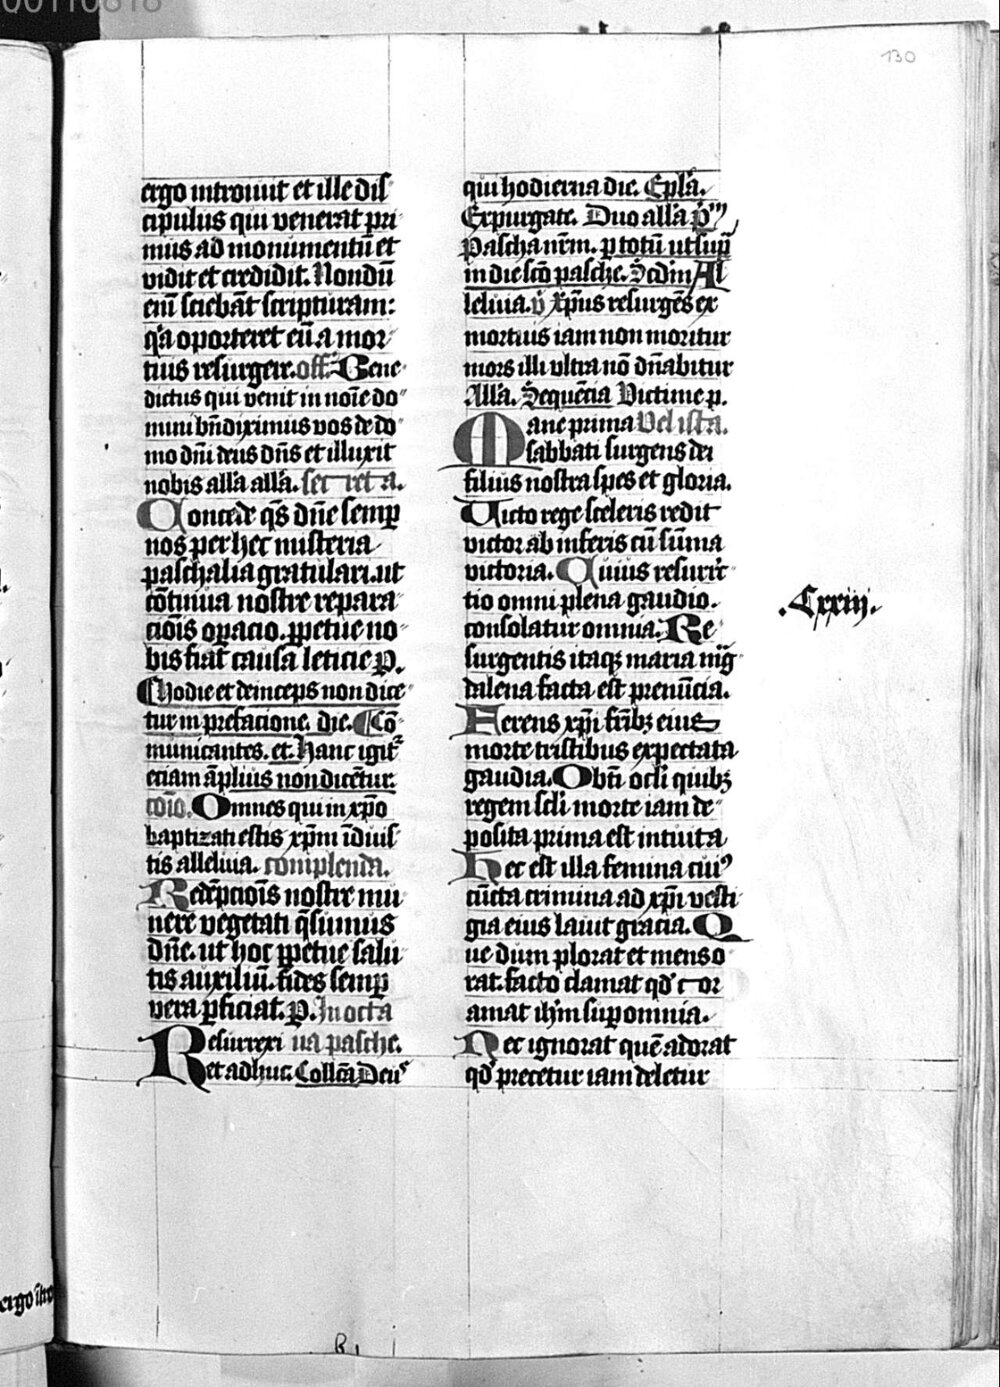 130
ergo introiuit et ille dis
cipulus qui venerat pri
mus ad monumentū et
vidit et credidit. Nondū
eni̅ sciebāt scripturam:
q̄a oporteret eū a mor
tuis resurgere. off. Bene
dictus qui venit in noīe do
mini bn̄diximus vos de do
mo dn̄i deus dn̄s et illuxit
nobis all̄a all̄a. secreta.
Concede q̄s dn̄e semꝑ
nos per hec misteria
paschalia gratulari. ut
cōtinua nostre repara
cioīs oꝑacio. ꝑpetue no
bis fiat causa leticie p.
Hodie et deinceps non dice
tur in prefacione. die. Cō
municantes. et. Hanc igit̄
eciam āplius non dicētur.
cōio. Omnes qui in xp̄o
baptizati estis xp̄m īduis
tis alleluia. complenda.
Redēpcioīs nostre mu
nere vegetati q̄sumus
dn̄e. ut hoc ꝑpetue salu
tis auxiliū. fides semꝑ
vera ꝓficiat. p. In octa
Resurrexi ua pasche.
et adhuc. Coll̄ca Deus
qui hodierna die. Epl̄a.
Expurgate. Duo all̄a p̄m
Pascha nr̄m. ꝑ totū ut sup̄
in die sc̄o pasche. Scd̄m Al
leluia. v̄ xp̄us resurgēs ex
mortuis iam non moritur
mors illi vltra nō dn̄abitur
All̄a. Sequēcia Victime p.
Mane prima Vel ista.
sabbati surgens dei
filius nostra spes et gloria.
Victo rege sceleris redit
victor ab inferis cū sūma
victoria. Cuius resurrec
tio omni plena gaudio.
consolatur omnia. Re
surgentis itaqꝫ maria mag
dalena facta est prenūcia.
Ferens xp̄i fr̄ibꝫ eius
morte tristibus expectata
gaudia. O bt̄i ocl̄i quibꝫ
regem scl̄i morte iam de
posita prima est intuita
Hec est illa femina cuiꝰ
cūcta crimina ad xp̄i vesti
gia eius lauit gracia. Q
ue dum plorat et mens o
rat. facto clamat qd̄ cor
amat ih̄m suꝑ omnia.
Nec ignorat quē adorat
qd̄ precetur iam deletur
.Cxxiij.